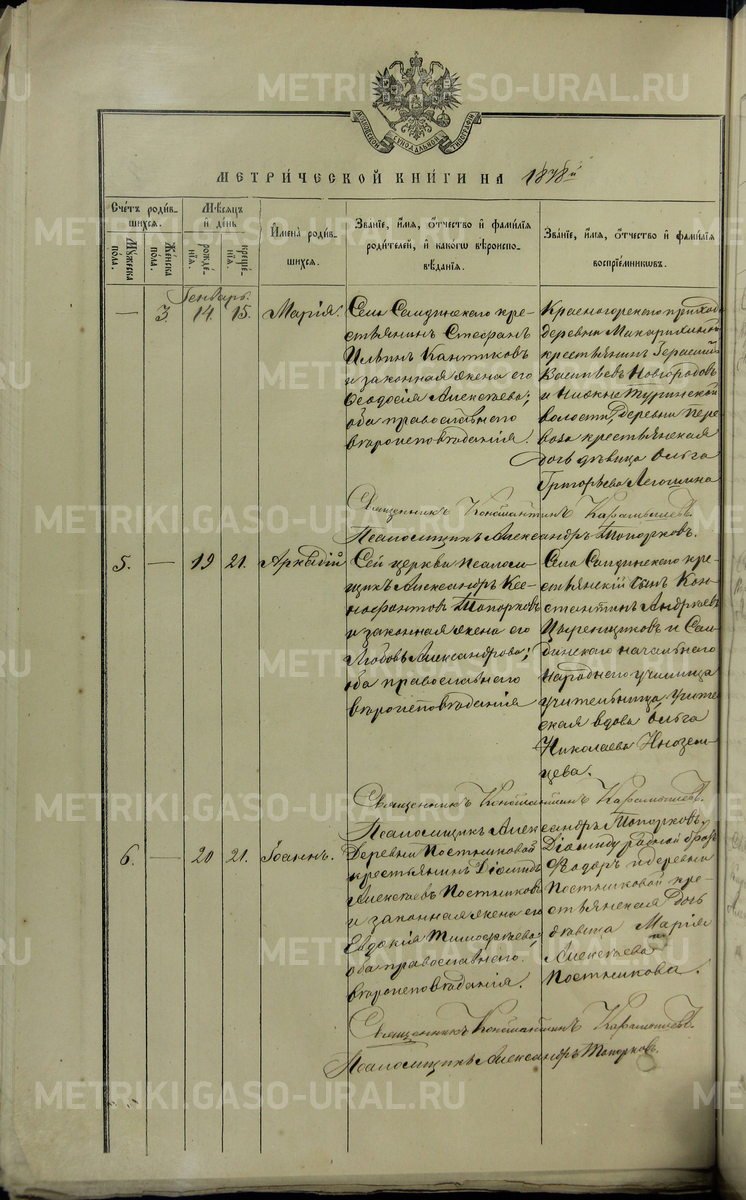 METRIKI.GASO-URAL.RU
МОСКОВСКОЙ СѴНОДАЛЬНОЙ ТИПОГРАФІИ
МЕТРИ́ЧЕСКОЙ КНИ́ГИ НА 1878й
Сче́тъ роди́в-
шихся.
Мꙋ́жеска
пола.
Же́нска
пола.
Мѣ́сяцъ
и҆ де́нь
рожде́-
нїѧ.
креще́-
нїѧ.
И҆мена̀ роди́в-
шихся.
Зва́нїе, и҆́мѧ, ѻ҆́тчество и҆ фами́лїѧ
роди́телей, и҆ како́гѡ вѣроиспо-
вѣ́данїѧ.
Зва́нїе, и҆́мѧ, ѻ҆́тчество и҆ фами́лїѧ
воспрїе́мникѡвъ.
Генварь.
— 3 14. 15. Марія.
Села Салдинскаго кре-
стьянинъ Стефанъ
Ильинъ
и законная жена его
Ѳеодосія Алексѣева;
оба православнаго
вѣроисповѣданія.
Красногорскаго прихода
деревни
крестьянинъ Герасимъ
Васильевъ Новгородовъ
и Нижне Туринской
волости, деревни Пере-
воза крестьянская
дочь дѣвица Ольга
Григорьева
Священникъ Константинъ Карамышевъ.
Псаломщикъ Александръ Топорковъ.
5. — 19 21. Аркадій
Сей церкви псалом-
щикъ Александръ Ксе-
нофонтовъ Топорковъ
и законная жена его
Любовь Александрова;
оба православнаго
вѣроисповѣданія
Села Салдинскаго кре-
стьянскій сынъ Кон-
стантинъ Андреевъ
и Сал-
динскаго начальнаго
народнаго училища
учительница
вдова Ольга
Николаева Инозем-
цева.
Священникъ Константинъ Карамышевъ.
Псаломщикъ Александръ Топорковъ.
6. — 20 21. Іоаннъ.
Деревни Постниковой
крестьянинъ Діомидъ
Алексѣевъ Постниковъ
и законная жена его
Евдокія Тимофеева;
оба православнаго
вѣроисповѣданія.
Діомиду родной братъ
Ѳедоръ и деревни
Постниковой кре-
стьянская дочь
дѣвица Марія
Алексѣева
Постникова.
Священникъ Константинъ Карамышевъ.
Псаломщикъ Александръ Топорковъ.